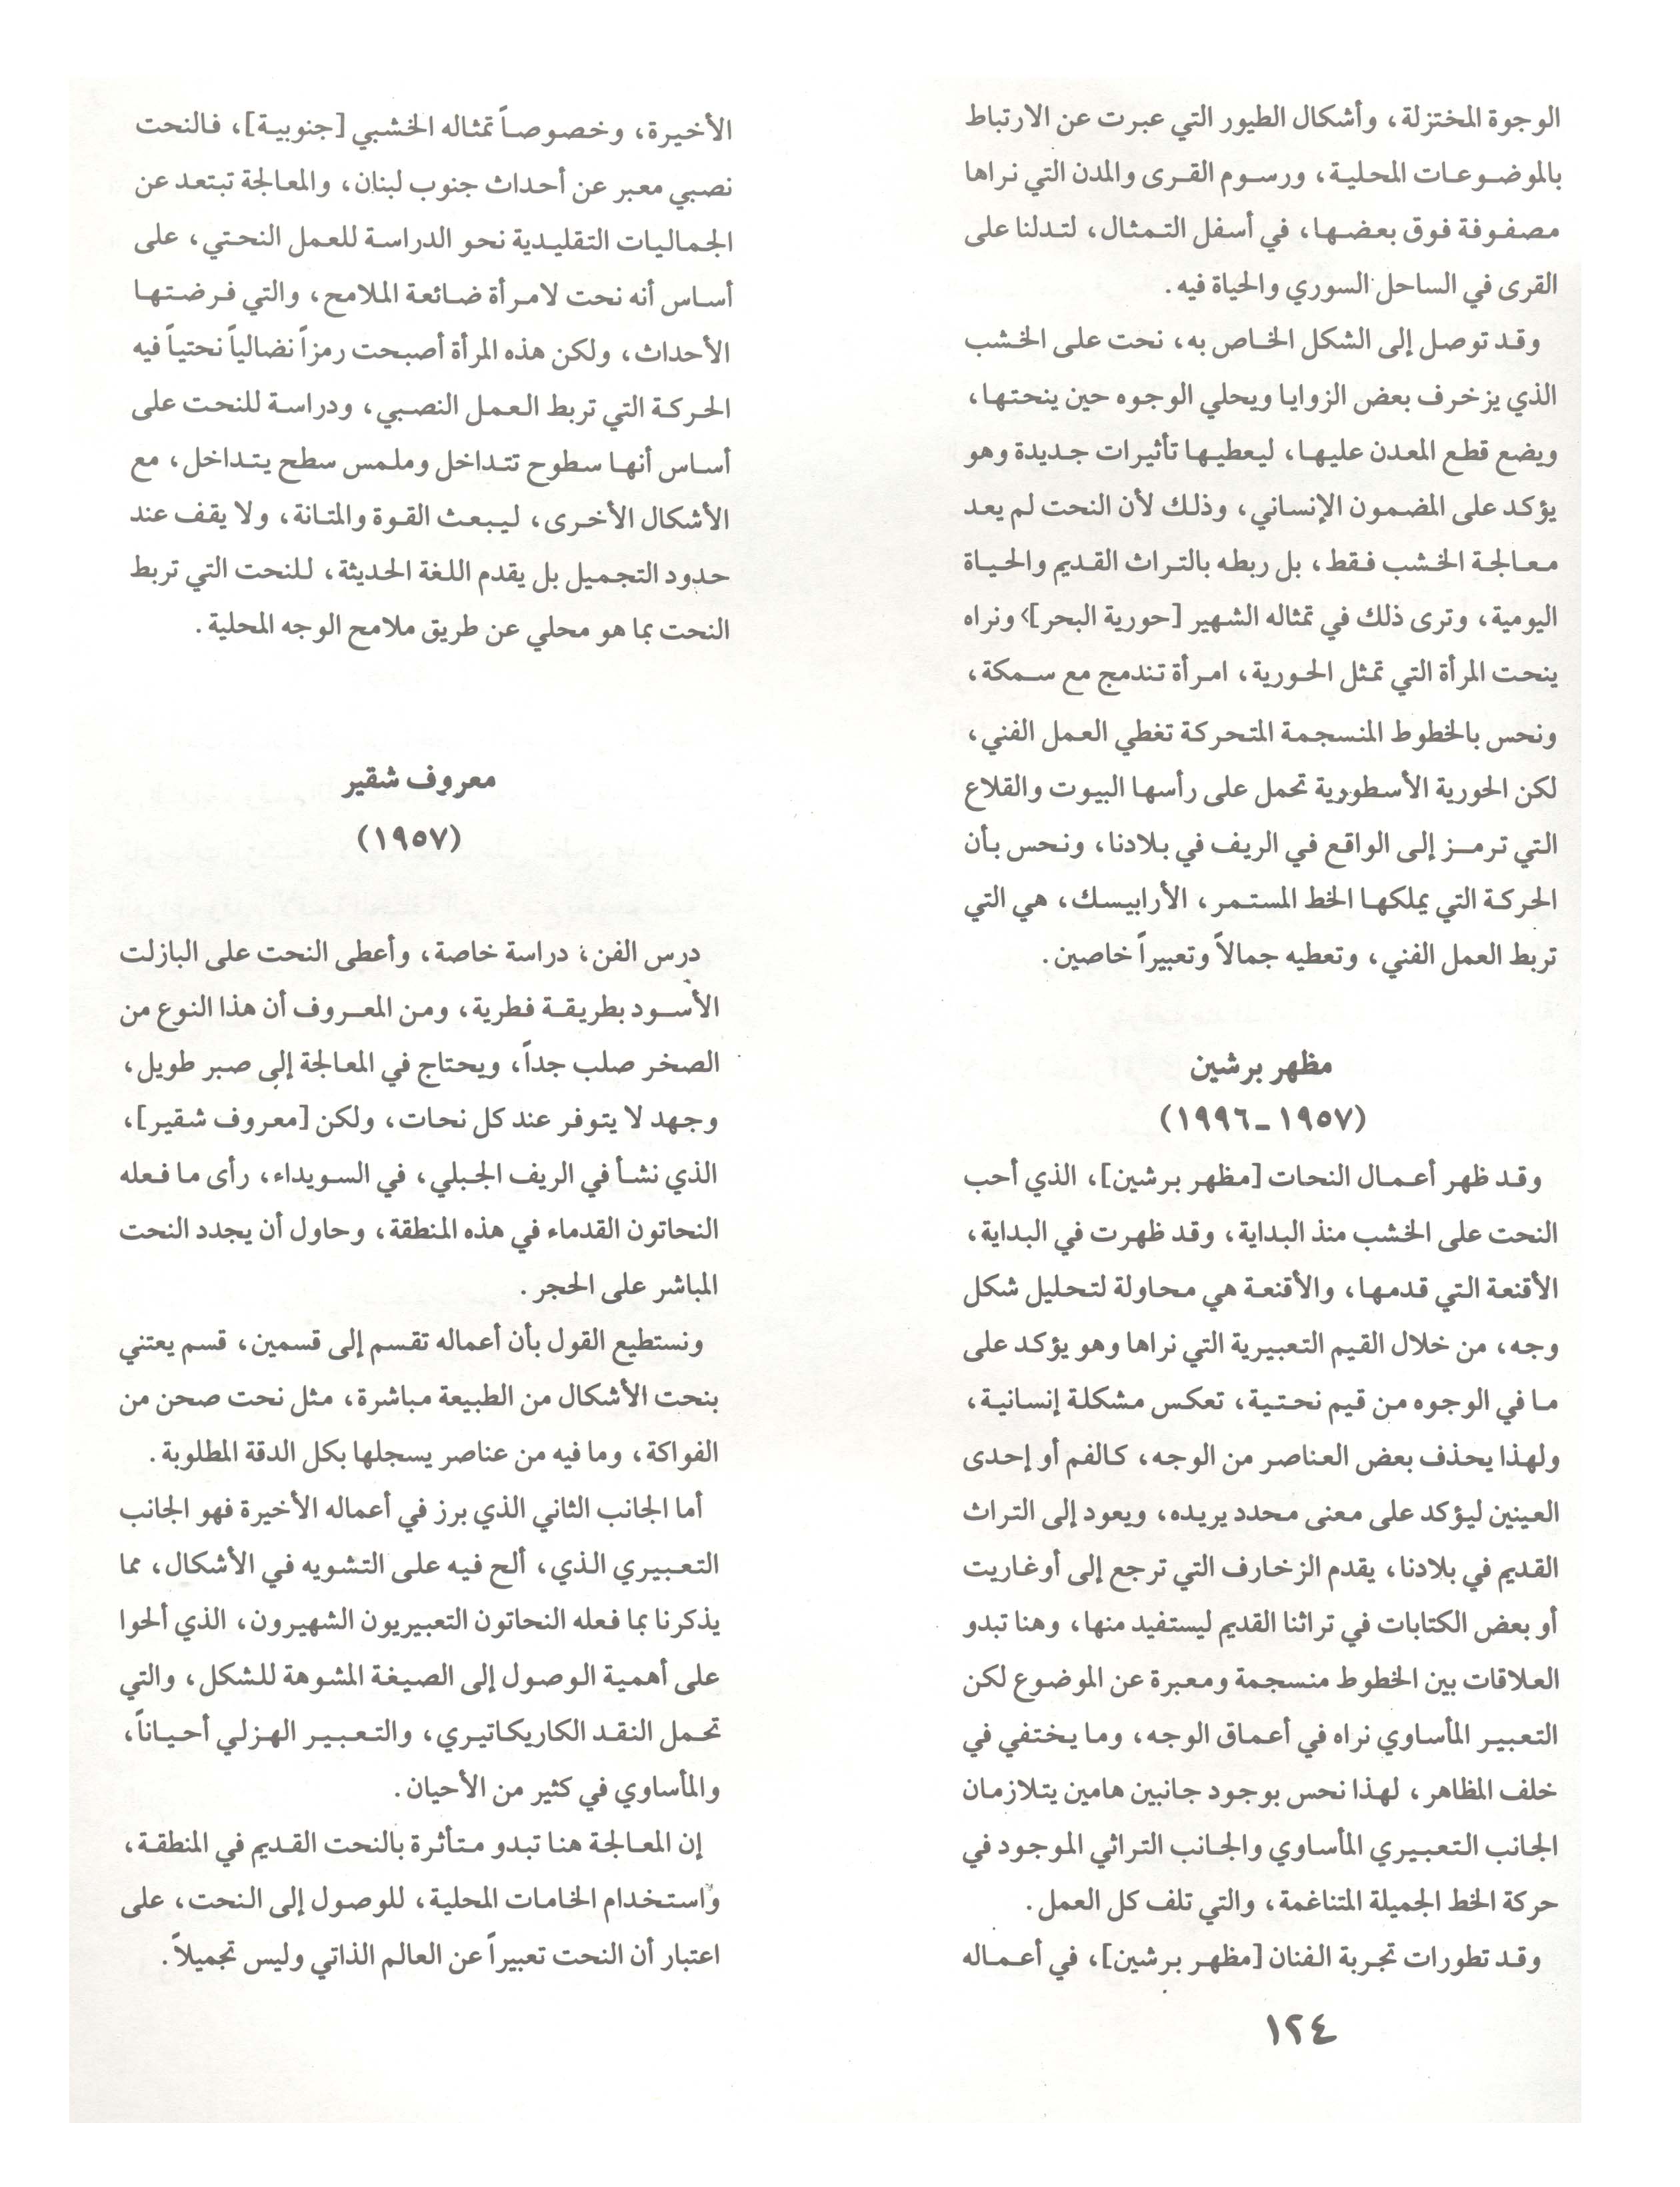 الوجوة المختزلة، وأشكال الطيور التي عبرت عن الارتباط
بالموضوعات المحلية، ورسوم القرى والمدن التي نراها
مصفوفة فوق بعضها، في أسفل التمثال، لتدلنا على
القرى في الساحل السوري والحياة فيه.
وقد توصل إلى الشكل الخاص به، نحت على الخشب
الذي يزخرف بعض الزوايا ويحلي الوجوه حين ينحتها،
ويضع قطع المعدن عليها، ليعطيها تأثيرات جديدة وهو
يؤكد على المضمون الإنساني، وذلك لأن النحت لم يعد
معالجة الخشب فقط، بل ربطه بالتراث القديم والحياة
اليومية، وترى ذلك في تمثاله الشهير [حورية البحر]> ونراه
ينحت المرأة التي تمثل الحورية، امرأة تندمج مع سمكة،
ونحس بالخطوط المنسجمة المتحركة تغطي العمل الفني،
لكن الحورية الأسطورية تحمل على رأسها البيوت والقلاع
التي ترمز إلى الواقع في الريف في بلادنا، ونحس بأن
الحركة التي يملكها الخط المستمر، الأرابيسك، هي التي
تربط العمل الفني، وتعطيه جمالاً وتعبيراً خاصين.
مظهر برشين
(١٩٥٧ـ١٩٩٦)
وقد ظهر أعمال النحات [مظهر برشين]، الذي أحب
النحت على الخشب منذ البداية، وقد ظهرت في البداية،
الأقنعة التي قدمها، والأقنعة هي محاولة لتحليل شكل
وجه، من خلال القيم التعبيرية التي نراها وهو يؤكد على
ما في الوجوه من قيم نحتية، تعكس مشكلة إنسانية،
ولهذا يحذف بعض العناصر من الوجه، كالفم أو إحدى
العينين ليؤكد على معنى محدد يريده، ويعود إلى التراث
القديم في بلادنا، يقدم الزخارف التي ترجع إلى أوغاريت
أو بعض الكتابات في تراثنا القديم ليستفيد منها، وهنا تبدو
العلاقات بين الخطوط منسجمة ومعبرة عن الموضوع لكن
التعبير المأساوي نراه في أعماق الوجه، وما يختفي في
خلف المظاهر، لهذا نحس بوجود جانبين هامين يتلازمان
الجانب التعبيري المأساوي والجانب التراثي الموجود في
حركة الخط الجميلة المتناغمة، والتي تلف كل العمل.
وقد تطورات تجربة الفنان [مظهر برشين]، في أعماله
الأخيرة، وخصوصاً تمثاله الخشبي [جنوبية]، فالنحت
نصبي معبر عن أحداث جنوب لبنان، والمعالجة تبتعد عن
الجماليات التقليدية نحو الدراسة للعمل النحتي، على
أساس أنه نحت لامرأة ضائعة الملامح، والتي فرضتها
الأحداث، ولكن هذه المرأة أصبحت رمزاً نضالياً نحتياً فيه
الحركة التي تربط العمل النصبي، ودراسة للنحت على
أساس أنها سطوح تتداخل وملمس سطح يتداخل، مع
الأشكال الأخرى، ليبعث القوة والمتانة، ولا يقف عند
حدود التجميل بل يقدم اللغة الحديثة، للنحت التي تربط
النحت بما هو محلي عن طريق ملامح الوجه المحلية.
معروف شقير
(١٩٥٧)
درس الفن، دراسة خاصة، وأعطى النحت على البازلت
الأسود بطريقة فطرية، ومن المعروف أن هذا النوع من
الصخر صلب جداً، ويحتاج في المعالجة إلى صبر طويل،
وجهد لا يتوفر عند كل نحات، ولكن [معروف شقير]،
الذي نشأ في الريف الجبلي، في السويداء، رأى ما فعله
النحاتون القدماء في هذه المنطقة، وحاول أن يجدد النحت
المباشر على الحجر.
ونستطيع القول بأن أعماله تقسم إلى قسمين، قسم يعتني
بنحت الأشكال من الطبيعة مباشرة، مثل نحت صحن من
الفواكة، وما فيه من عناصر يسجلها بكل الدقة المطلوبة.
أما الجانب الثاني الذي برز في أعماله الأخيرة فهو الجانب
التعبيري الذي، ألح فيه على التشويه في الأشكال، مما
يذكرنا بما فعله النحاتون التعبيريون الشهيرون، الذي ألحوا
على أهمية الوصول إلى الصيغة المشوهة للشكل، والتي
تحمل النقد الكاريكاتيري، والتعبير الهزلي أحياناً،
والمأساوي في كثير من الأحيان.
إن المعالجة هنا تبدو متأثرة بالنحت القديم في المنطقة،
واستخدام الخامات المحلية، للوصول إلى النحت، على
اعتبار أن النحت تعبيراً عن العالم الذاتي وليس تجميلاً.
١٢٤